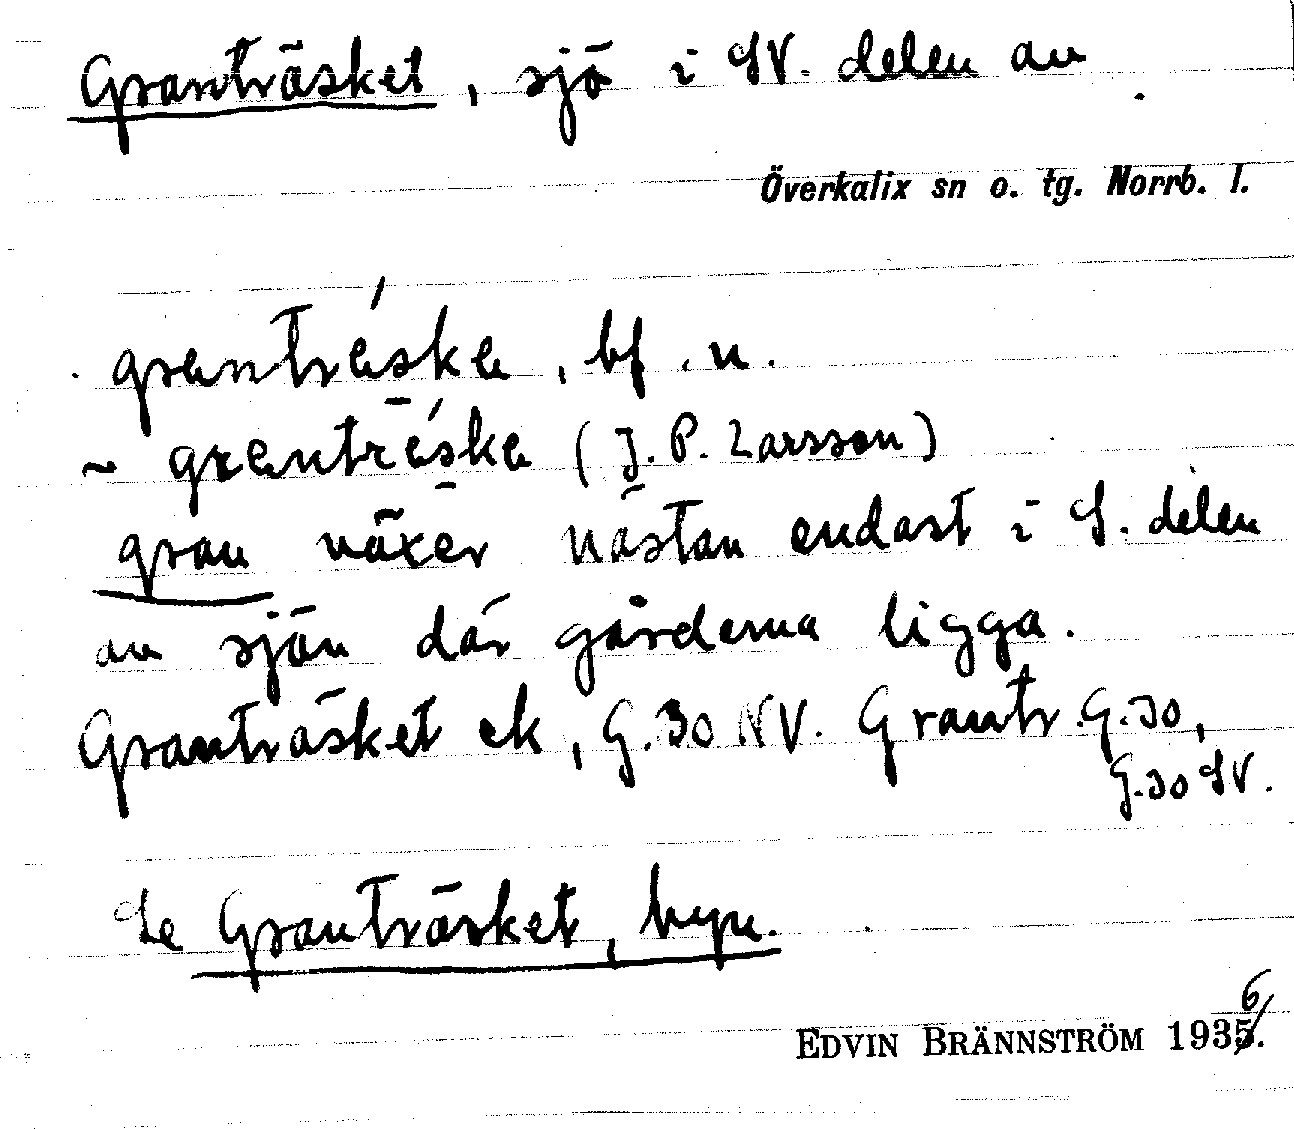 Granträsket, sjö i SV. delen av
Överkalix sn o. tg. Norrb. l.
grantrǻska, bf. n.
~ grantrēska (J. P. Larsson)
gran växer nästan endast i S. delen
av sjön där gårderna ligga.
Granträsket ek, G.30 NV. Grantr. G.30,
G.30 SV.
Se Granträsket, byn.
EDVIN BRÄNNSTRÖM 1936.